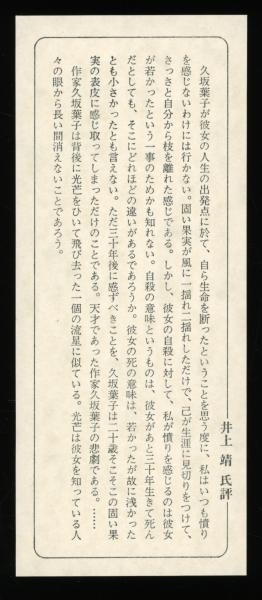 井上 靖 氏評
久坂葉子が彼女の人生の出発点に於て、自ら生命を断ったということを思う度に、私はいつも憤り
を感じないわけには行かない。固い果実が風に一揺れ二揺れしただけで、己が生涯に見切りをつけて、
さっさと自分から枝を離れた感じである。しかし、彼女の自殺に対して、私が憤りを感じるのは彼女
が若かったという一事のためかも知れない。自殺の意味というものは、彼女があと三十年生きて死ん
だとしても、そこにどれほどの違いがあるであろうか。彼女の死の意味は、若かったが故に浅かった
とも小さかったとも言えない。ただ三十年後に感ずべきことを、久坂葉子は二十歳そこそこの固い果
実の表皮に感じ取ってしまっただけのことである。天才であった作家久坂葉子の悲劇である。……
作家久坂葉子は背後に光芒をひいて飛び去った一個の流星に似ている。光芒は彼女を知っている人
々の眼から長い間消えないことであろう。